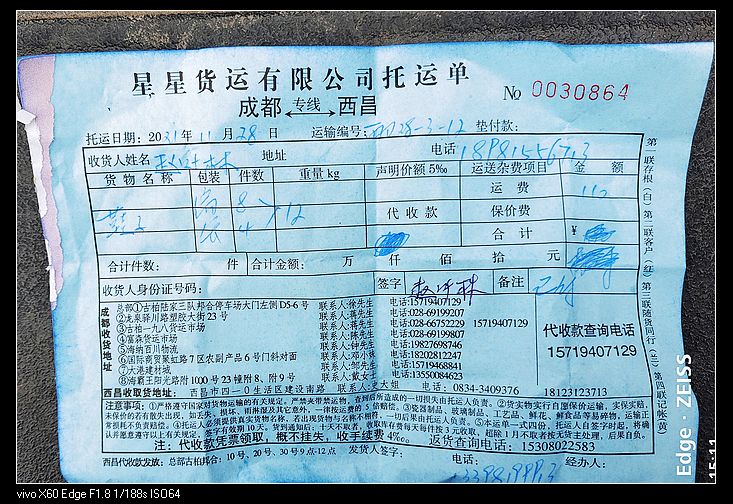 星星货运有限公司托运单
成都 专线 西昌
№ 0030864
托运日期：2021年11月28日 运输编号：28-3-12 垫付款：
收货人姓名 地址 电话：
货物名称 包装 件数 重量kg 声明价额5‰ 运送杂费项目 金额
8 运费 110
12 代收款 保价费
4 合计 ¥
合计件数： 件 合计金额： 万 仟 佰 拾 元
收货人身份证号码： 签字 备注
成都收货地址
总部①古柏陆家三队邦合停车场大门左侧D5-6号 联系人:徐先生 电话:15719407129
②龙泉驿川路塑胶大街23号 联系人:蒋先生 电话:028-69199207
③古柏一九八货运市场 联系人:蒋先生 电话:028-66752229 15719407129
④富森货运市场 联系人:陈先生 电话:028-69199807
⑤海纳百川物流 联系人:钟先生 电话:19827698746
⑥国际商贸聚虹路7区农副产品6号门斜对面 联系人:邓小妹 电话:18202812247
⑦大港建材城 联系人:邹先生 电话:15719468841
⑧海霸王阳光路附1000号23幢附8、附9号 联系人:戴女士 电话:13550084623
代收款查询电话
15719407129
西昌收货地址 西昌市四一0生活区建设南路 联系人:史大姐 电话：0834-3409376 18123123713
注意事项：①严格遵守国家对货物运输的有关规定。严禁夹带禁运物，查到后所造成的一切损失由托运人负责。②货实物实行自愿保价运输，实保实赔，
未保价的若有散失出现，如丢失、损坏、而淋湿及其它意外，一律按运费的5倍赔偿。③瓷器制品、玻璃制品、工艺品、鲜花、鲜食品等易碎物，运输正
常损耗不负责赔偿。④托运人必须提供真实货物名称，若出现货物与名称不相符，一切后果由托运人负责。⑤本运单一式四份，托运人自签字起时，将确
认并愿意遵守以上有关规定，签字有效期10天。货到通知后：十天不取者，收取库存费每天每件按3元收取，超除1月不取者按无货主处理，后果自负。
注：代收款凭票领取，概不挂失，收手续费4‰。 返货查询电话：15308022583
西昌代收款发放：总部古柏邦合：10号、20号、30号9点-12点 发货人签字： 电话： 经办人：
第一联存根（白） 第二联客户（红） 第三联随货同行（兰） 第四联记帐（黄）
Edge · ZEISS
15:11
vivo X60 Edge F1.8 1/188s ISO64